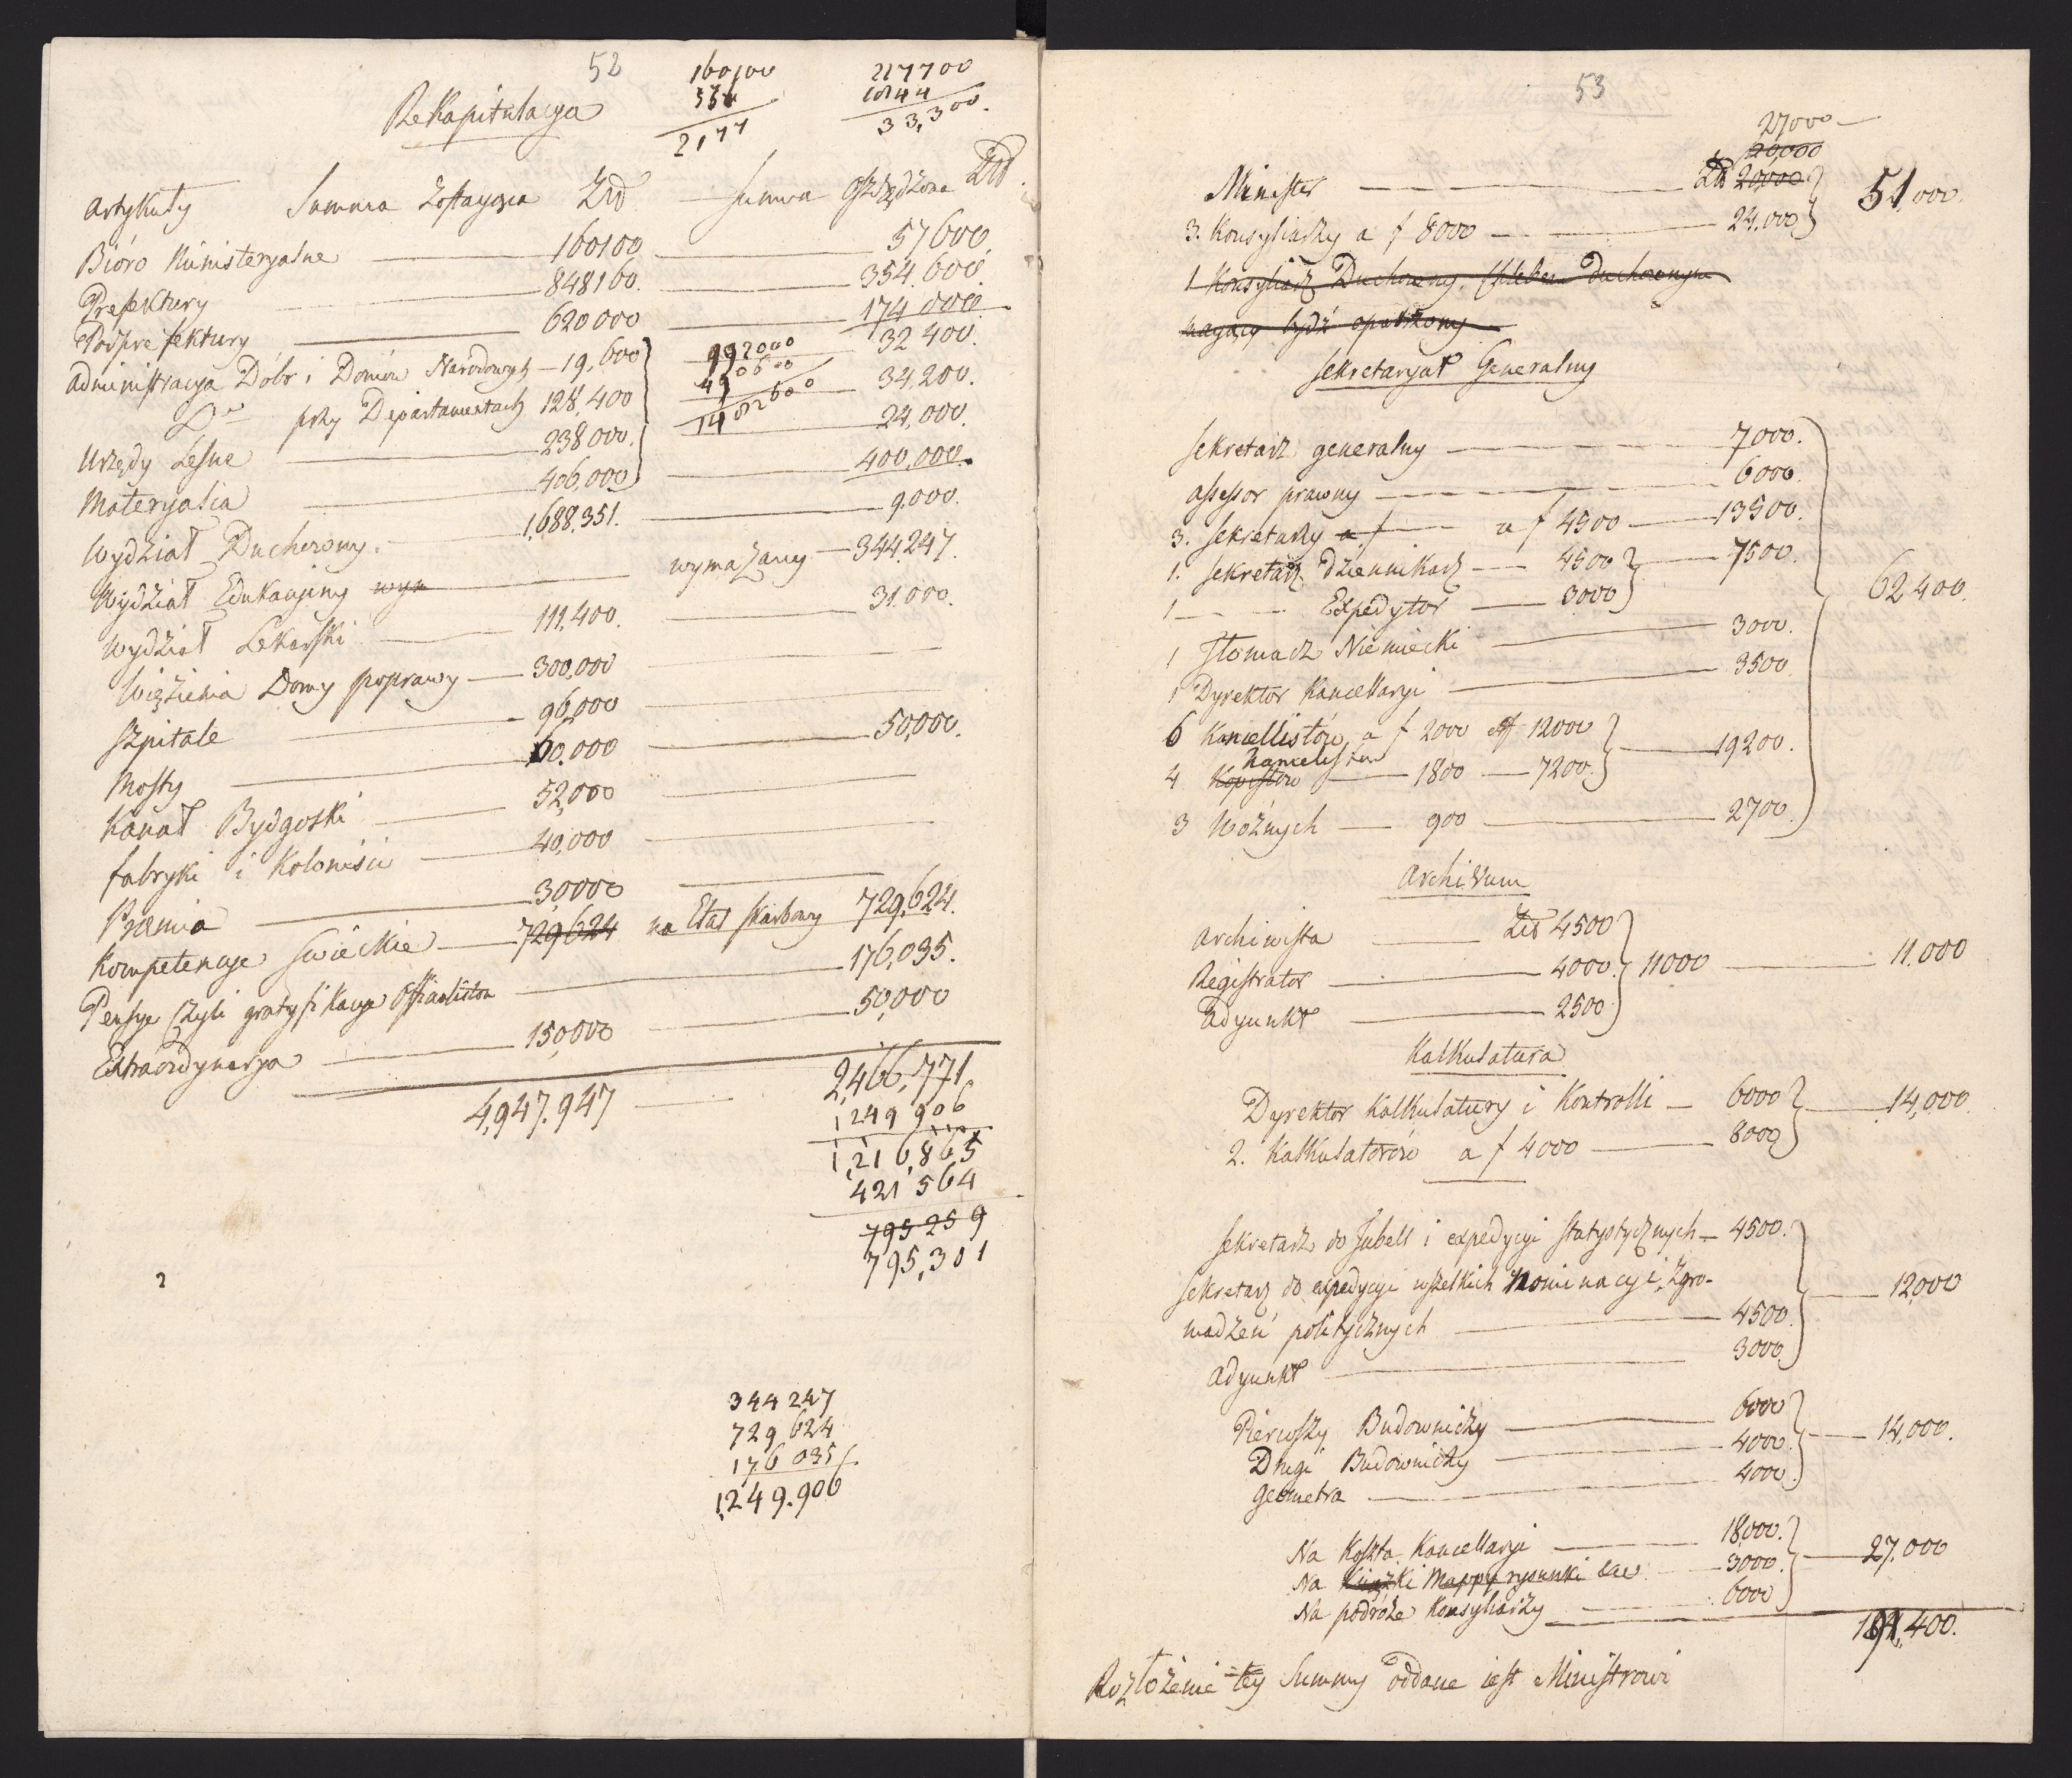 52
Rekapitulacya
160100
2177
217700
1844
33,300.
artykuły Summa Zostaiąca Złł Summa Oszczędzona Złł.
Bióro Ministeryalne 160100 57600.
Prefektury 848160. 354.600.
Podprefektury 620000 174.000.
administracya Dóbr i Domów Narodowych 19,600 32400.
Do przy Departamentach 128,400 34,200.
992000
490600
1482600
Urzędy Leśne 238000. 24,000.
Materyalia 406,000 400,000.
Wydział Duchowny. 1,688,351. 9.000.
Wydział Edukacyiny wym wymazany 344.247.
Wydział Lekarski 111,400. 31.000.
Więzienia Domy poprawy 300,000
Szpitale 96,000
Mosty 60.000 50,000.
Kanał Bydgoski 52,000
fabryki i Koloniści 40,000
Præmia 30,000
Kompetencye Swieckie 729624 na Etat Skarbowy 729,624.
Pensye czyli gratyfikacye Officialistom 176,035.
Extraordynarya 150,000 50,000
4,947.947 2,466,771
1249906
1,216,865
421564
795259
795,301
344247
729624
176035
1,249.906
53
27000
20,000
Minister Złł 20000
51,000.
3. Konsyliarzy a f 8000 24,000
1 Konsyliarz Duchowny, Chlebem Duchownym
maiący bydź opatrzony
Sekretaryat Generalny
Sekretarz generalny 7000.
assessor prawny 6000.
3. Sekretarzy a f a f 4500 13500.
1. Sekretarz dziennikarz 4500 7500.
1 Expedytor 3000
62400.
1 Tłomacz Niemiecki 3000.
1 Dyrektor Kancellaryi 3500.
6 Kancellistów a f 2000 f 12000
19200.
Kancelistów
4 Kopistów 1800 7200
3 Woźnych 900 2700.
Archivum
Archiwista Złł 4500
Registrator 4000. 11000 11.000
adyunkt 2500
Kalkulatura
Dyrektor Kalkulatury i Kontrolli 6000
14,000.
2. Kalkulatorów a f 4000 8000
Sekretarz do Tabell i expedycyi Statystycznych 4500.
Sekretarz do expedycyi wszelkich Nominacyi, Zgro-
12000
madzeń politycznych 4500.
adyunkt 3000.
Pierwszy Budowniczy 6000
Drugi Budowniczy 4000. 14,000.
Geometra 4000.
Na Koszta Kancellaryi 18,000.
Na Książki Mappy rysunki 3000. 27.000
Na podróże Konsyliarzy 6000
191,400.
Rozłożenie tey Summy oddane iest Ministrowi